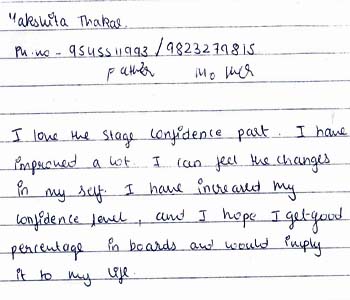 Yakshita Thakar.
Ph.no - 9545511993 / 9823279815
Father Mother
I love the stage confidence part. I have
improved a lot. I can feel the changes
in my self. I have increased my
confidence level, and I hope I get good
percentage in boards and would imply
it to my life.